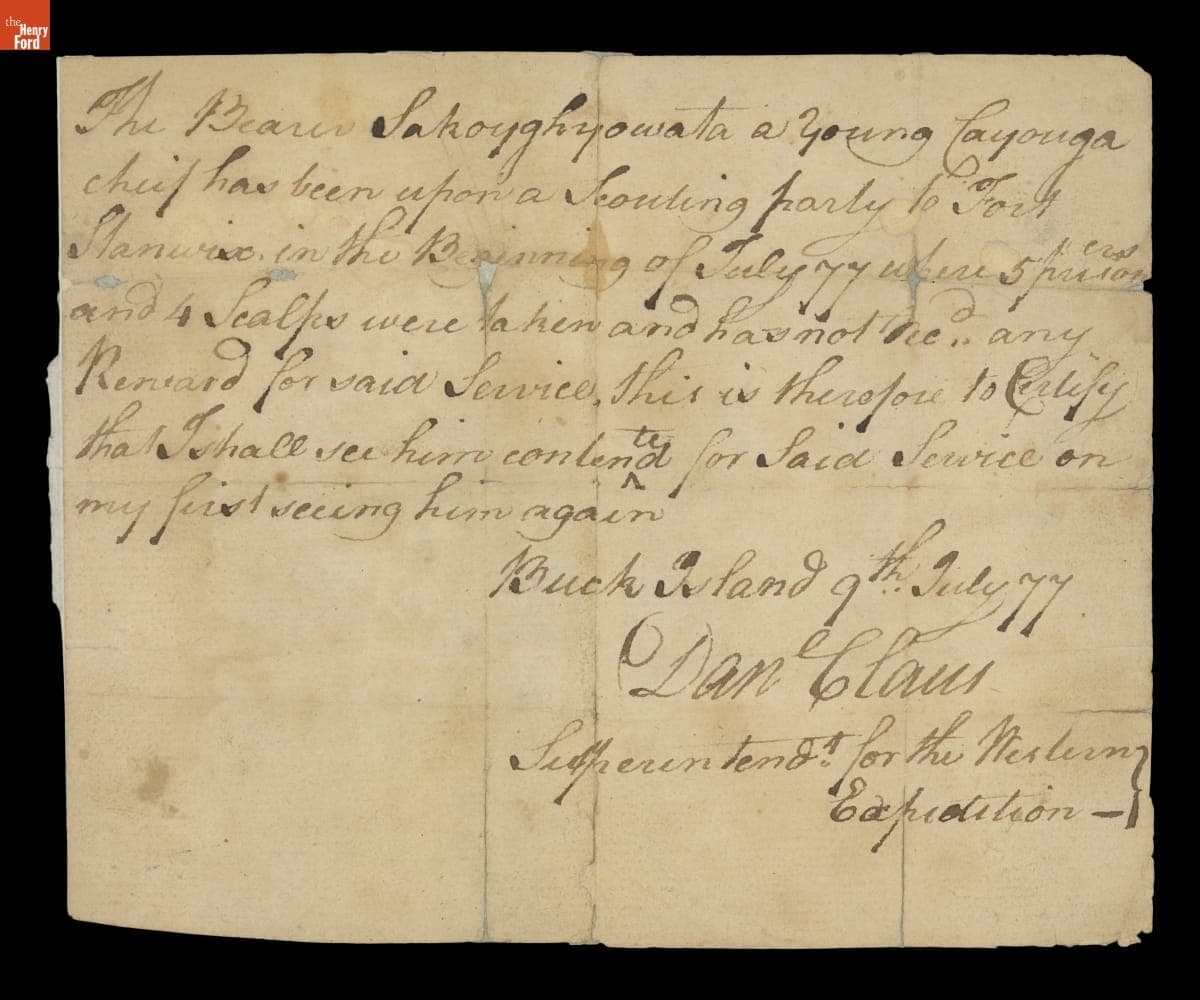 the
Henry
Ford
The Bearer Sakoyghyowata a Young Cayouga
cheif has been upon a Scouting party to Fort
Stanwix in the Beginning of July 77 where 5 prisoners
and 4 Scalps were taken and has not recd. any
Reward for said Service, this is therefore to Certify
that I shall see him contented for Said Service on
my first seeing him again
Buck Island 9th. July 77
Danl Claus
Superintendt. for the Western
Expedition —